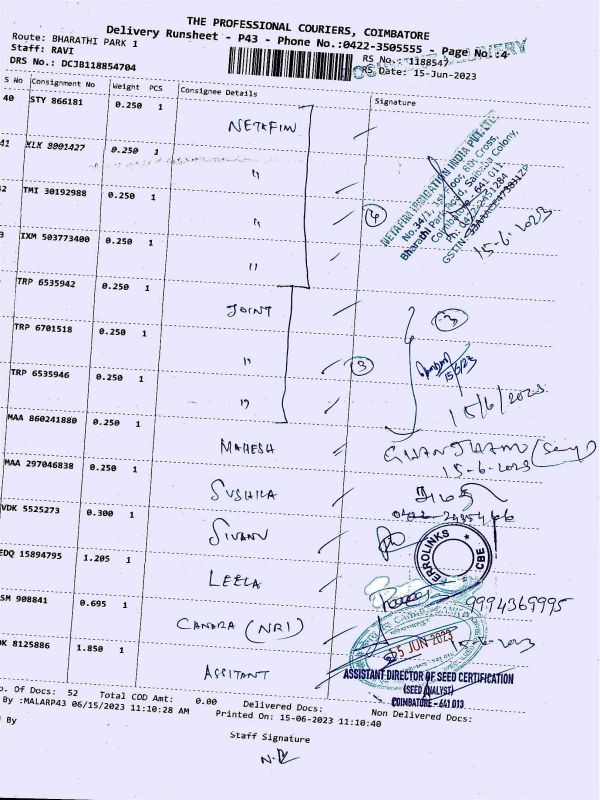 THE PROFESSIONAL COURIERS, COIMBATORE
Delivery Runsheet - P43 - Phone No.:0422-3505555 - Page No.:4
Route: BHARATHI PARK 1
Staff: RAVI
DRS No.: DCJB118854704
RS No.: 1188547
RS Date: 15-Jun-2023
S No Consignment No Weight PCS Consignee Details Signature
40 STY 866181 0.250 1 NETAFIM
41 KLK 9001427 0.250 1 "
2 TMI 30192988 0.250 1 "
3 IXM 503773400 0.250 1 "
NETAFIM IRRIGATION INDIA PVT. LTD.
No.34/1, 1st Floor, 6th Cross,
Bharathi Park Road, Saibaba Colony,
Coimbatore - 641 011.
15-6-2023
TRP 6535942 0.250 1 JOINT
TRP 6701518 0.250 1 " 3
TRP 6535946 0.250 1 "
15/6/2023
MAA 860241880 0.250 1 MAHESH
15-6-2023
MAA 297046838 0.250 1 SUSHILA
VDK 5525273 0.300 1 SIVANU
ERROLINKS CBE
EDQ 15894795 1.205 1 LEELA
9994369995
SM 908841 0.695 1 CANARA (NRI)
15 JUN 2023
OK 8125886 1.850 1 ASSITANT
ASSISTANT DIRECTOR OF SEED CERTIFICATION
(SEED ANALYST)
COIMBATORE - 641 013
o. Of Docs: 52 Total COD Amt: 0.00 Delivered Docs: Non Delivered Docs:
By :MALARP43 06/15/2023 11:10:28 AM Printed On: 15-06-2023 11:10:40
d By
Staff Signature